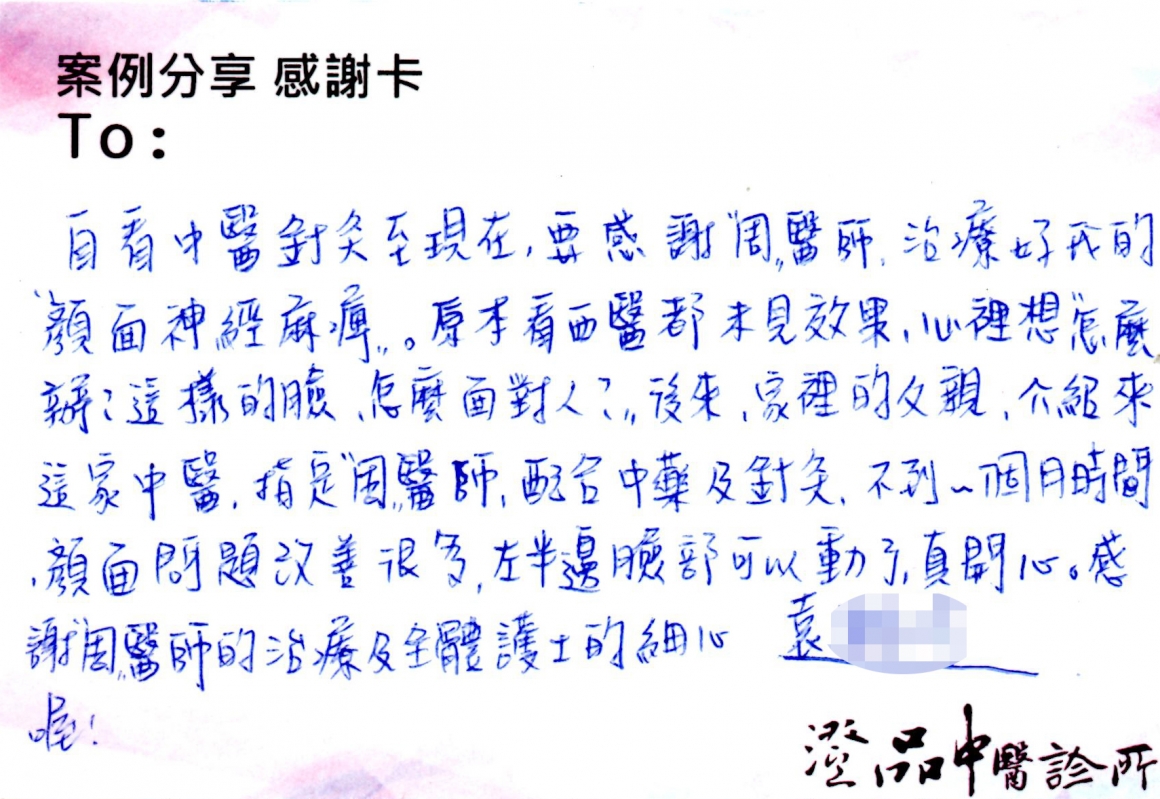 案例分享 感謝卡
To：
自看中醫針灸至現在，要感謝"周"醫師，治療好我的
"顏面神經麻痺"。原本看西醫都未見效果，心裡想"怎麼
辦？這樣的臉，怎麼面對人？"後來，家裡的父親，介紹來
這家中醫，指定"周"醫師，配合中藥及針灸，不到一個月時間
，顏面問題改善很多，左半邊臉部可以動了，真開心。感
謝"周"醫師的治療及全體護士的細心 袁
喔！
澄品中醫診所